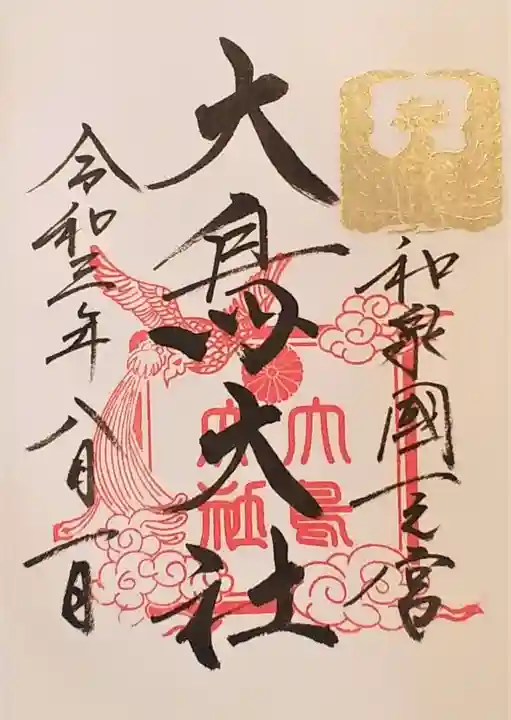 和泉國一之宮
大鳥大社
大鳥大社
令和三年八月一日